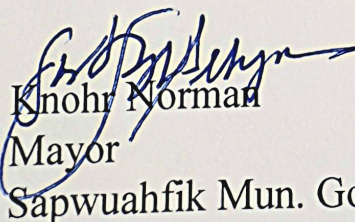 Knohr Norman
Mayor
Sapwuahfik Mun. Go